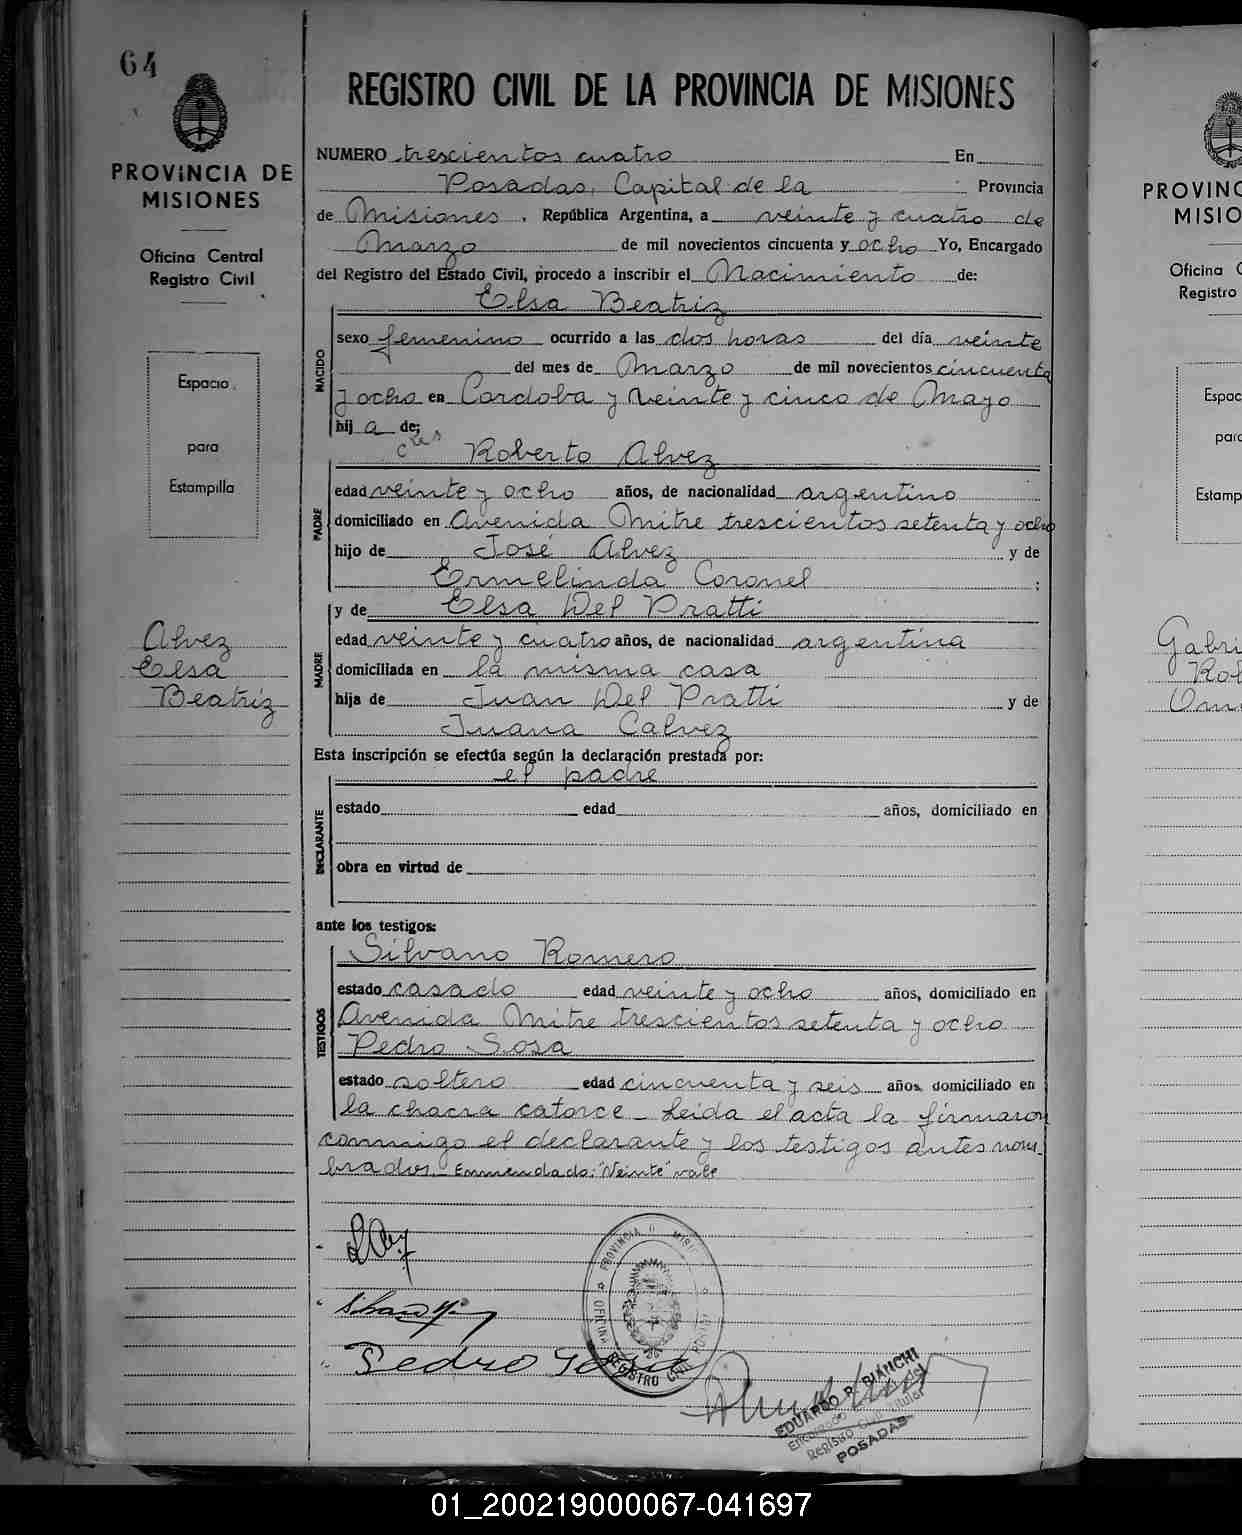 64
PROVINCIA DE
MISIONES
Oficina Central
Registro Civil
Espacio
para
Estampilla
Alvez
Elsa
Beatriz
REGISTRO CIVIL DE LA PROVINCIA DE MISIONES
NUMERO trescientos cuatro En
Posadas, Capital de la Provincia
de Misiones. República Argentina, a veinte y cuatro de
Marzo de mil novecientos cincuenta y ocho Yo, Encargado
del Registro del Estado Civil, procedo a inscribir el Nacimiento de:
Elsa Beatriz
NACIDO
sexo femenino ocurrido a las dos horas del día veinte
del mes de Marzo de mil novecientos cincuenta
y ocho en Cordoba y Veinte y cinco de Mayo
hij a de:
Roberto Alvez
PADRE
edad veinte y ocho años, de nacionalidad argentino
domiciliado en Avenida Mitre trescientos setenta y ocho
hijo de José Alvez y de
Ermelinda Coronel ;
y de Elsa Del Pratti
MADRE
edad veinte y cuatro años, de nacionalidad argentina
domiciliada en la misma casa
hija de Juan Del Pratti y de
Juana Calvez
Esta inscripción se efectúa según la declaración prestada por:
el padre
DECLARANTE
estado edad años, domiciliado en
obra en virtud de
ante los testigos:
Silvano Romero
TESTIGOS
estado casado edad veinte y ocho años, domiciliado en
Avenida Mitre trescientos setenta y ocho
Pedro Sosa
estado soltero edad cincuenta y seis años, domiciliado en
la chacra catorce - Leida el acta la firmaron
conmigo el declarante y los testigos antes nom-
brados. Enmendado: "Veinte" vale
Pedro Sosa
PROVINCIA D MISI
OFICINA
REGISTRO CIVIL
EDUARDO R. BIANCHI
Encargado del
Registro Civil Titular
POSADAS
PROVINC
MISIO
Oficina C
Registro
Espac
para
Estamp
Gabri
Rob
Oma
01_200219000067-041697